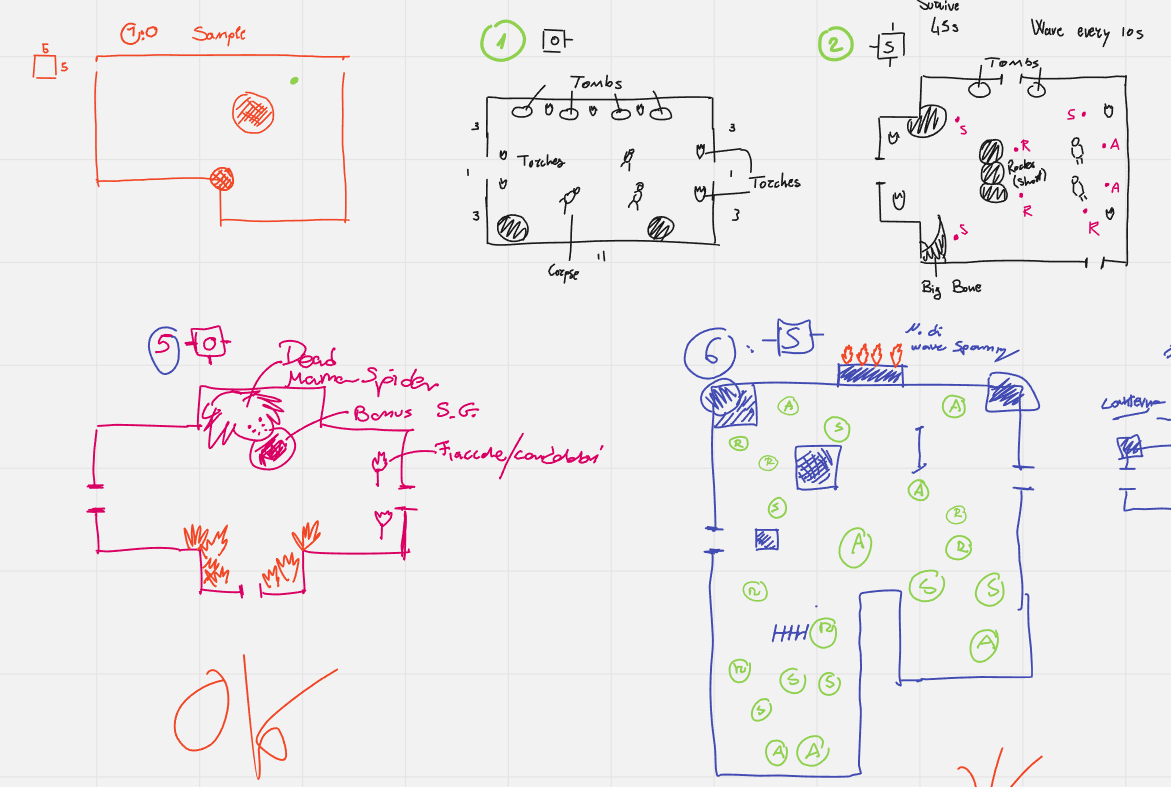 Sample
5
5
1
O
Tombs
3
3
Torches
1
1
Torches
3
3
Corpse
11
2
S
Survive
45s
Wave every 10s
Tombs
S
S
R
A
Rocks
(short)
A
R
R
S
Big Bone
5
O
Dead
Mama Spider
Bonus S.G.
Fiaccole/candelabri
OK
6
S
N. di
wave spawn
A
A
S
R
R
A
S
R
A
R
R
S
S
R
A
R
S
S
S
A
A
Lanterna